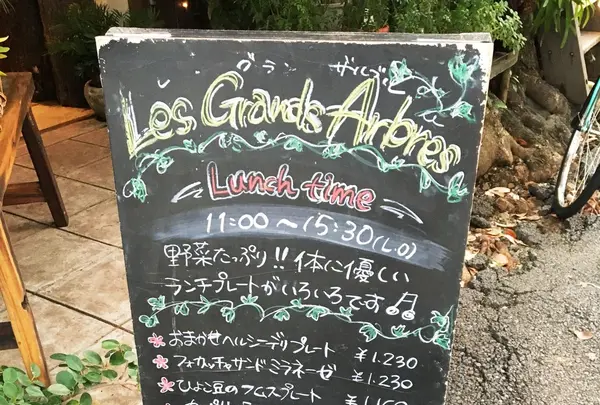 レ グラン ザルブル
Les Grands Arbres
Lunch time
11:00〜15:30(L.O)
野菜たっぷり!!体に優しい
ランチプレートがいろいろです♫
おまかせヘルシーデリプレート ¥1.230
フォカッチャサンドミラネーゼ ¥1.230
ひよこ豆のラムスプレート ¥1.160